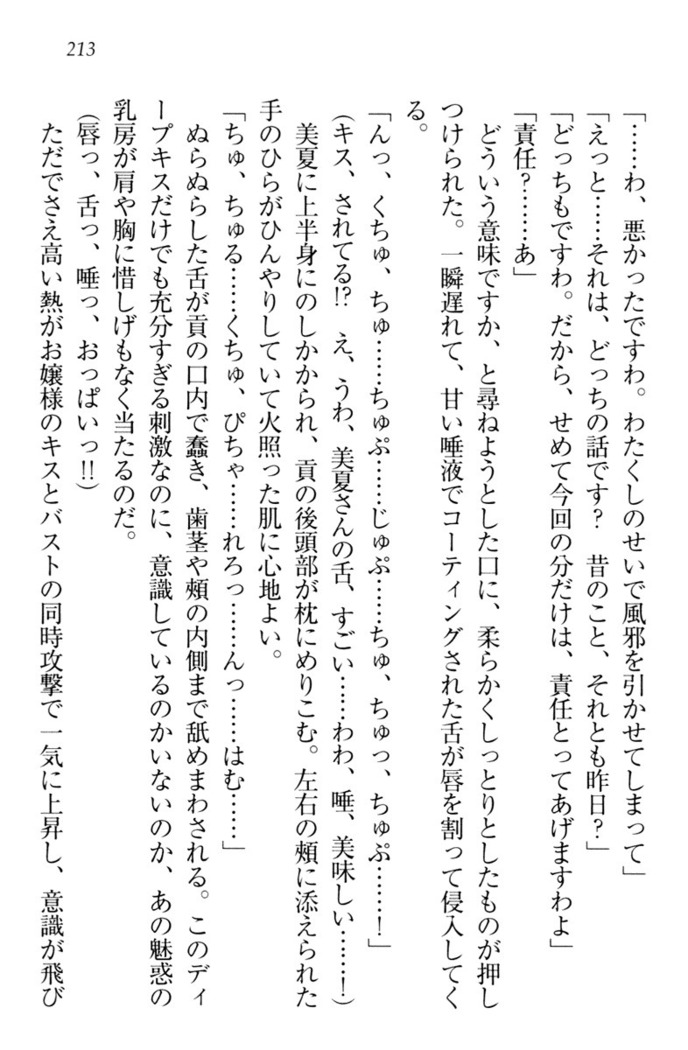 213
「……わ、悪かったですわ。わたくしのせいで風邪を引かせてしまって」
「えっと……それは、どっちの話です？　昔のこと、それとも昨日？」
「どっちもですわ。だから、せめて今回の分だけは、責任とってあげますわよ」
「責任？……あ」
　どういう意味ですか、と尋ねようとした口に、柔らかくしっとりとしたものが押し
つけられた。一瞬遅れて、甘い唾液でコーティングされた舌が唇を割って侵入してく
る。
「んっ、くちゅ、ちゅ……ちゅぷ……じゅぷ……ちゅ、ちゅっ、ちゅぷ……！」
（キス、されてる!?　え、うわ、美夏さんの舌、すごい……わわ、唾、美味しい……！）
　美夏に上半身にのしかかられ、貢の後頭部が枕にめりこむ。左右の頬に添えられた
手のひらがひんやりしていて火照った肌に心地よい。
「ちゅ、ちゅる……くちゅ、ぴちゃ……れろっ……んっ……はむ……」
　ぬらぬらした舌が貢の口内で蠢き、歯茎や頬の内側まで舐めまわされる。このディ
ープキスだけでも充分すぎる刺激なのに、意識しているのかいないのか、あの魅惑の
乳房が肩や胸に惜しげもなく当たるのだ。
（唇っ、舌っ、唾っ、おっぱいっ!!）
　ただでさえ高い熱がお嬢様のキスとバストの同時攻撃で一気に上昇し、意識が飛び